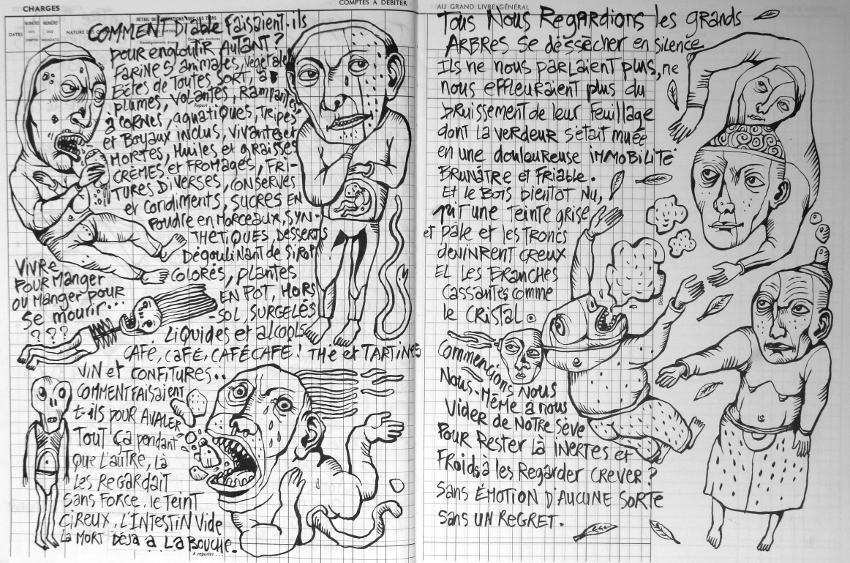 CHARGES
COMPTES A DÉBITER
DATES
NATURE DES
COMMENT DIABLE FAISAIENT-ils
POUR ENGLOUTIR AUTANT?
FARINES, ANIMAUX, VÉGÉTALES
BÊTES DE TOUTES SORT, À
PLUMES, VOLANTES, RAMPANTES
À CORNES, AQUATIQUES, TRIPES
et BOYAUX INCLUS, VIVANTES et
MORTES, HUILES et GRAISSES
CRÈMES et FROMAGES, FRI-
TURES DIVERSES, CONSERVES
et CONDIMENTS, SUCRES EN
Poudre en MORCEAUX, SYN-
THÉTIQUES, DESSERTS
Dégoulinant de SIROP
COLORÉS, PLANTES
EN POT, HORS
-SOL, SURGELÉS
LIQUIDES et ALCOOLS
CAFÉ, CAFÉ, CAFÉ CAFÉ! THÉ et TARTINES
VIN et CONFITURES..
VIVRE
POUR MANGER
OU MANGER POUR
SE MOURIR...
???
COMMENT FAISAIENT
t-ils POUR AVALER
TOUT ÇA PENDANT
QUE L'AUTRE, LÀ
LES REGARDAIT
SANS FORCE, LE TEINT
CIREUX, L'INTESTIN VIDE
LA MORT DÉJÀ À LA BOUCHE.
A reporter
AU GRAND LIVRE GÉNÉRAL
TOUS NOUS REGARDIONS les grands
ARBRES SE DESSÉCHER en SILENCE
ILS NE NOUS PARLAIENT PLUS, NE
NOUS EFFLEURAIENT PLUS DU
BRUISSEMENT DE LEUR FEUILLAGE
DONT LA VERDEUR S'ÉTAIT MUÉE
EN UNE DOULOUREUSE IMMOBILITÉ
BRUNÂTRE et FRIABLE.
Et le BOIS BIENTÔT NU,
PRIT UNE TEINTE GRISE
et PALE et LES TRONCS
DEVINRENT CREUX
ET LES BRANCHES
CASSANTES COMME
le CRISTAL.
COMMENCIONS NOUS
NOUS-MÊME À NOUS
VIDER DE NOTRE SÈVE
POUR RESTER LÀ INERTES et
FROIDS À LES REGARDER CREVER?
SANS ÉMOTION D'AUCUNE SORTE
SANS UN REGRET.